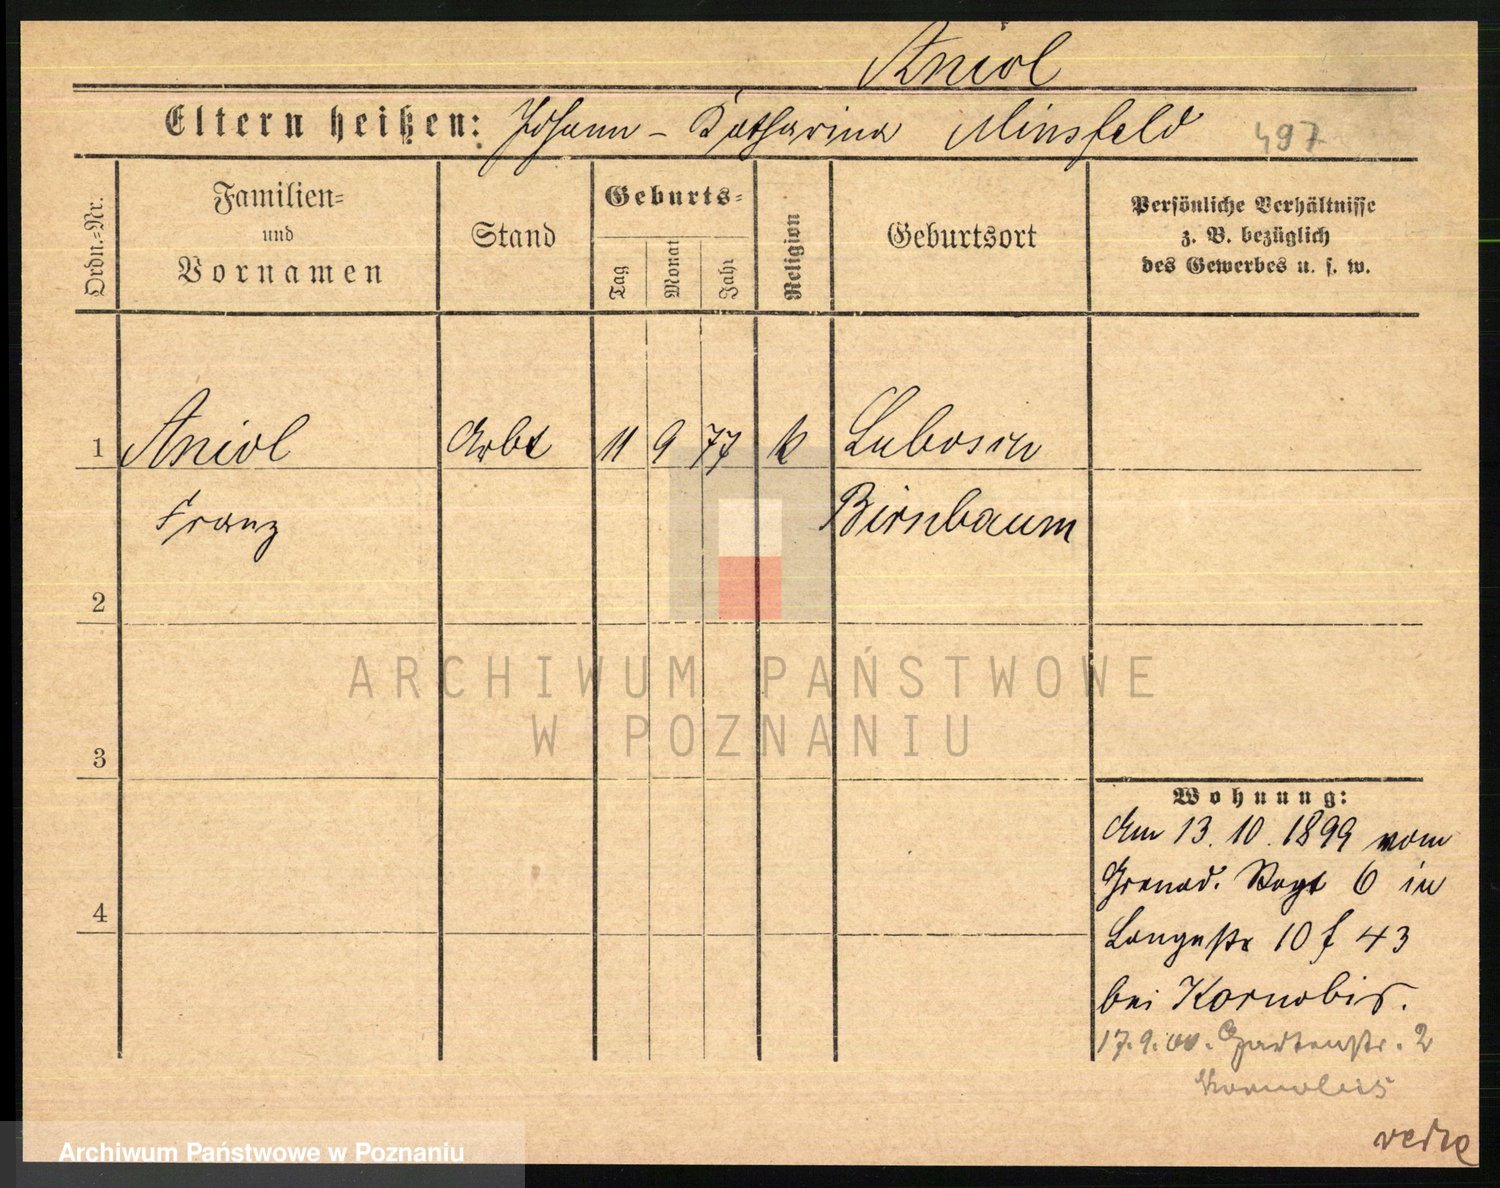 Aniol
Eltern heißen: Johann - Katharina Minsfeld 497
Ordn.-Nr.
Familien-
und
Vornamen
Stand
Geburts-
Tag
Monat
Jahr
Religion
Geburtsort
Persönliche Verhältnisse
z. B. bezüglich
des Gewerbes u. s. w.
1 Aniol Arbt 11 9 77 k Lubosin
Franz Birnbaum
2
ARCHIWUM PAŃSTWOWE
W POZNANIU
3
Wohnung:
Am 13. 10. 1899 vom
4
Grenad. Regt 6 in
Langestr 10 f 43
bei Kornobis.
17.9.00. Gartenstr. 2
Kornobis
Archiwum Państwowe w Poznaniu